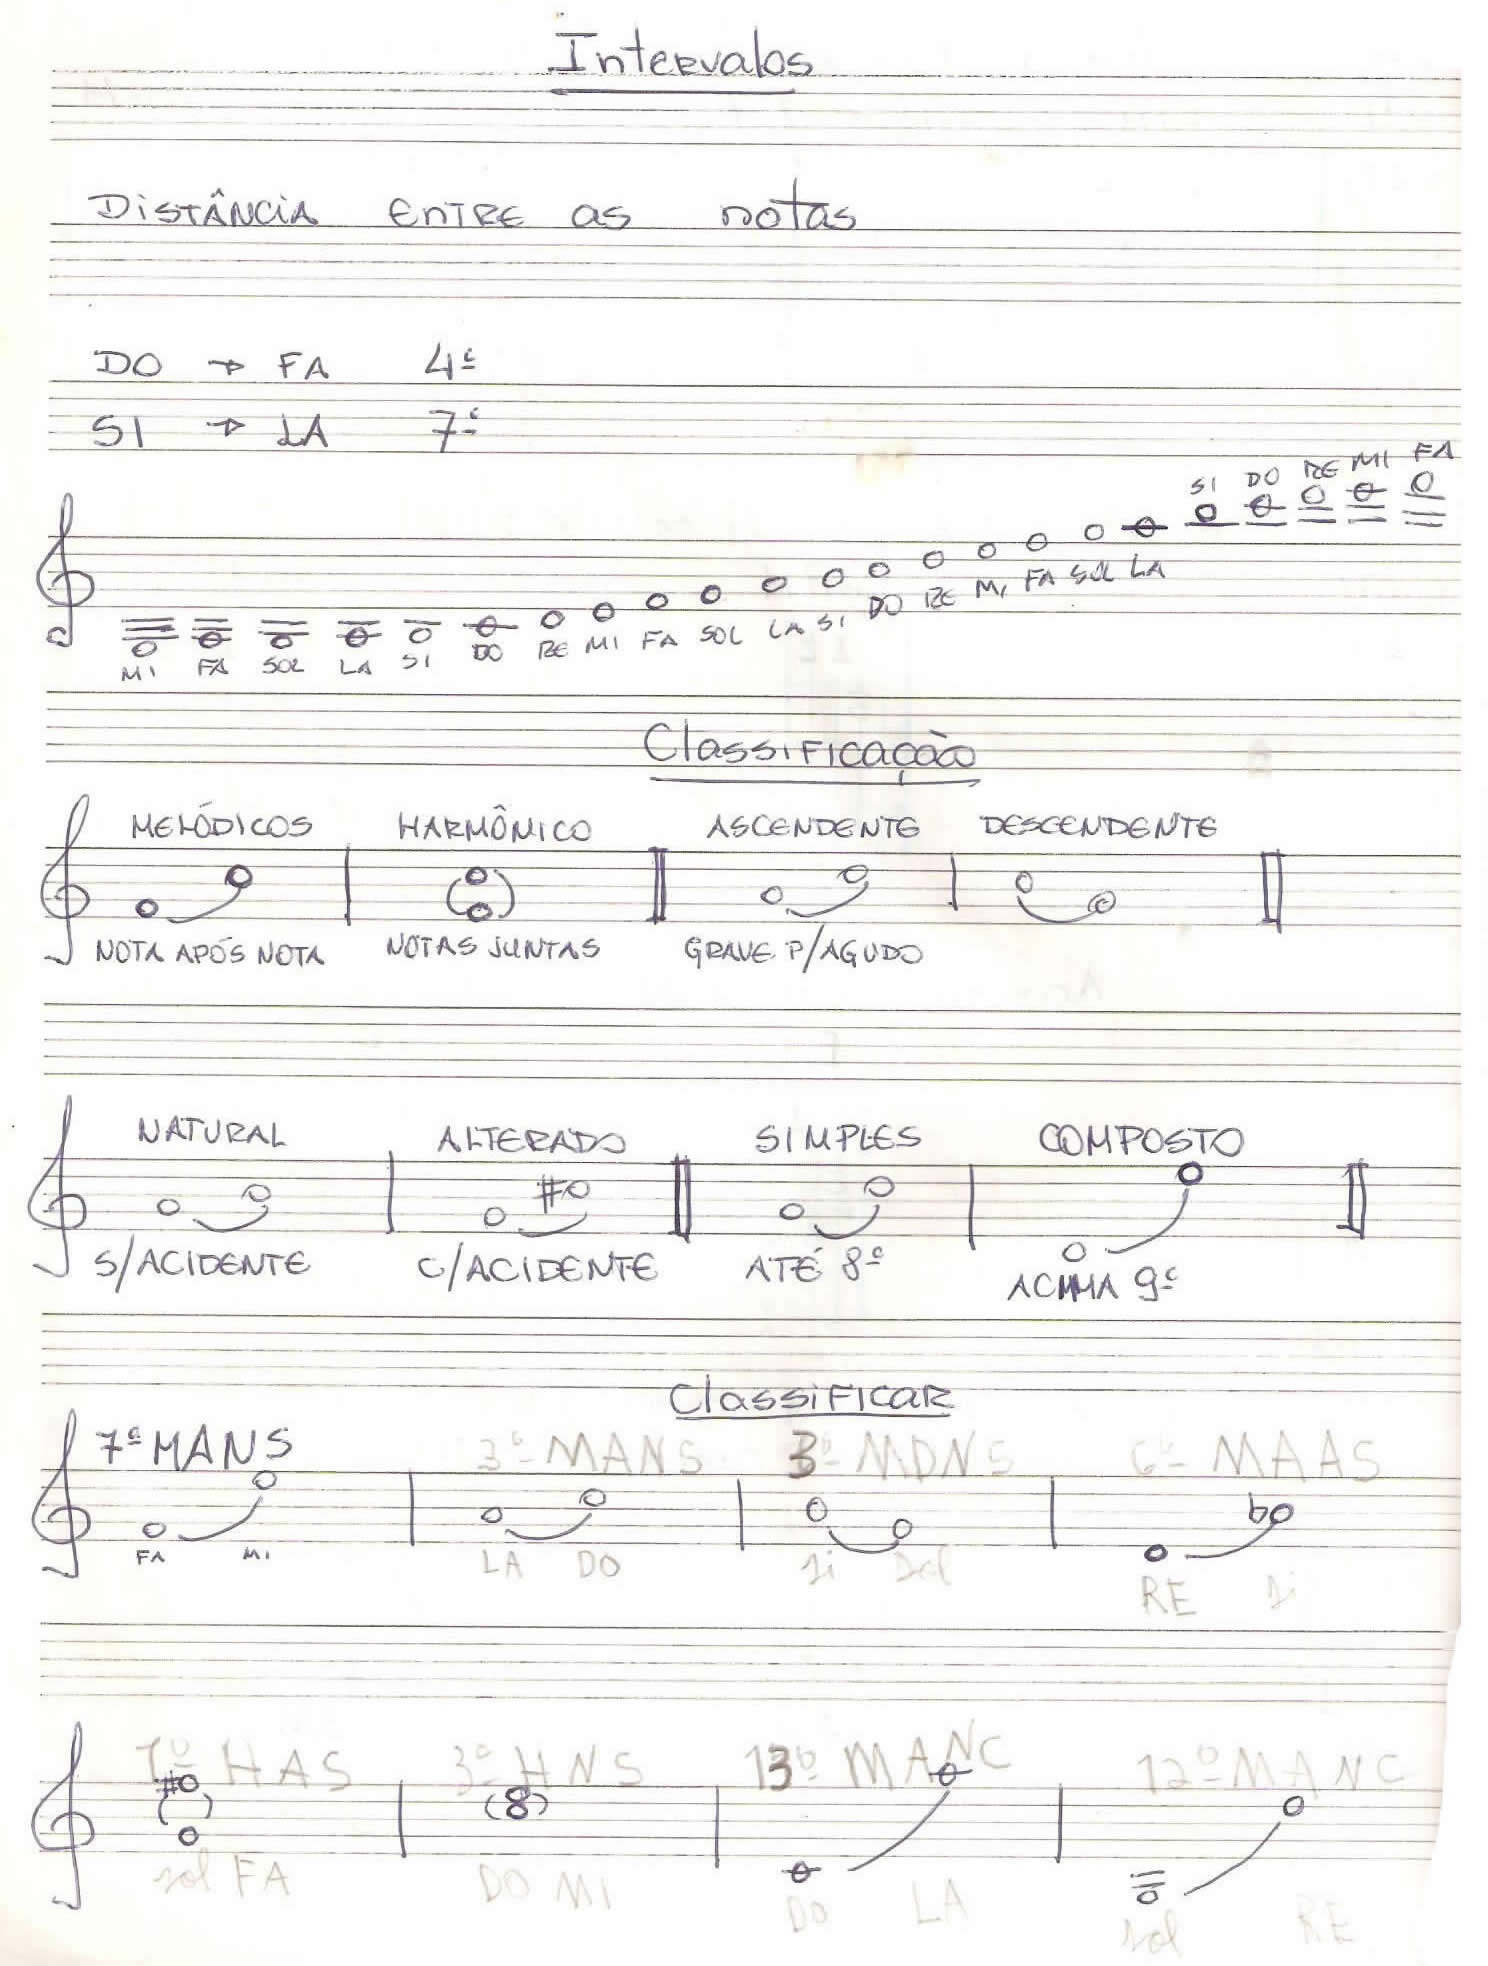 Intervalos
DISTÂNCIA ENTRE as notas
DO → FA 4ª
SI → LA 7ª
SI DO RE MI FA
MI FA SOL LA SI DO RE MI FA SOL LA SI DO RE MI FA SOL LA
Classificação
MELÓDICOS HARMÔNICO ASCENDENTE DESCENDENTE
NOTA APÓS NOTA NOTAS JUNTAS GRAVE P/AGUDO
NATURAL ALTERADO SIMPLES COMPOSTO
S/ACIDENTE C/ACIDENTE ATÉ 8ª ACIMA 9ª
Classificar
7ª MANS 3º MANS 3º MDNS 6º MAAS
FA MI LA DO Si Sol RE Si
7º HAS 3º HNS 13º MANC 12º MANC
Sol FA DO MI DO LA Sol RE